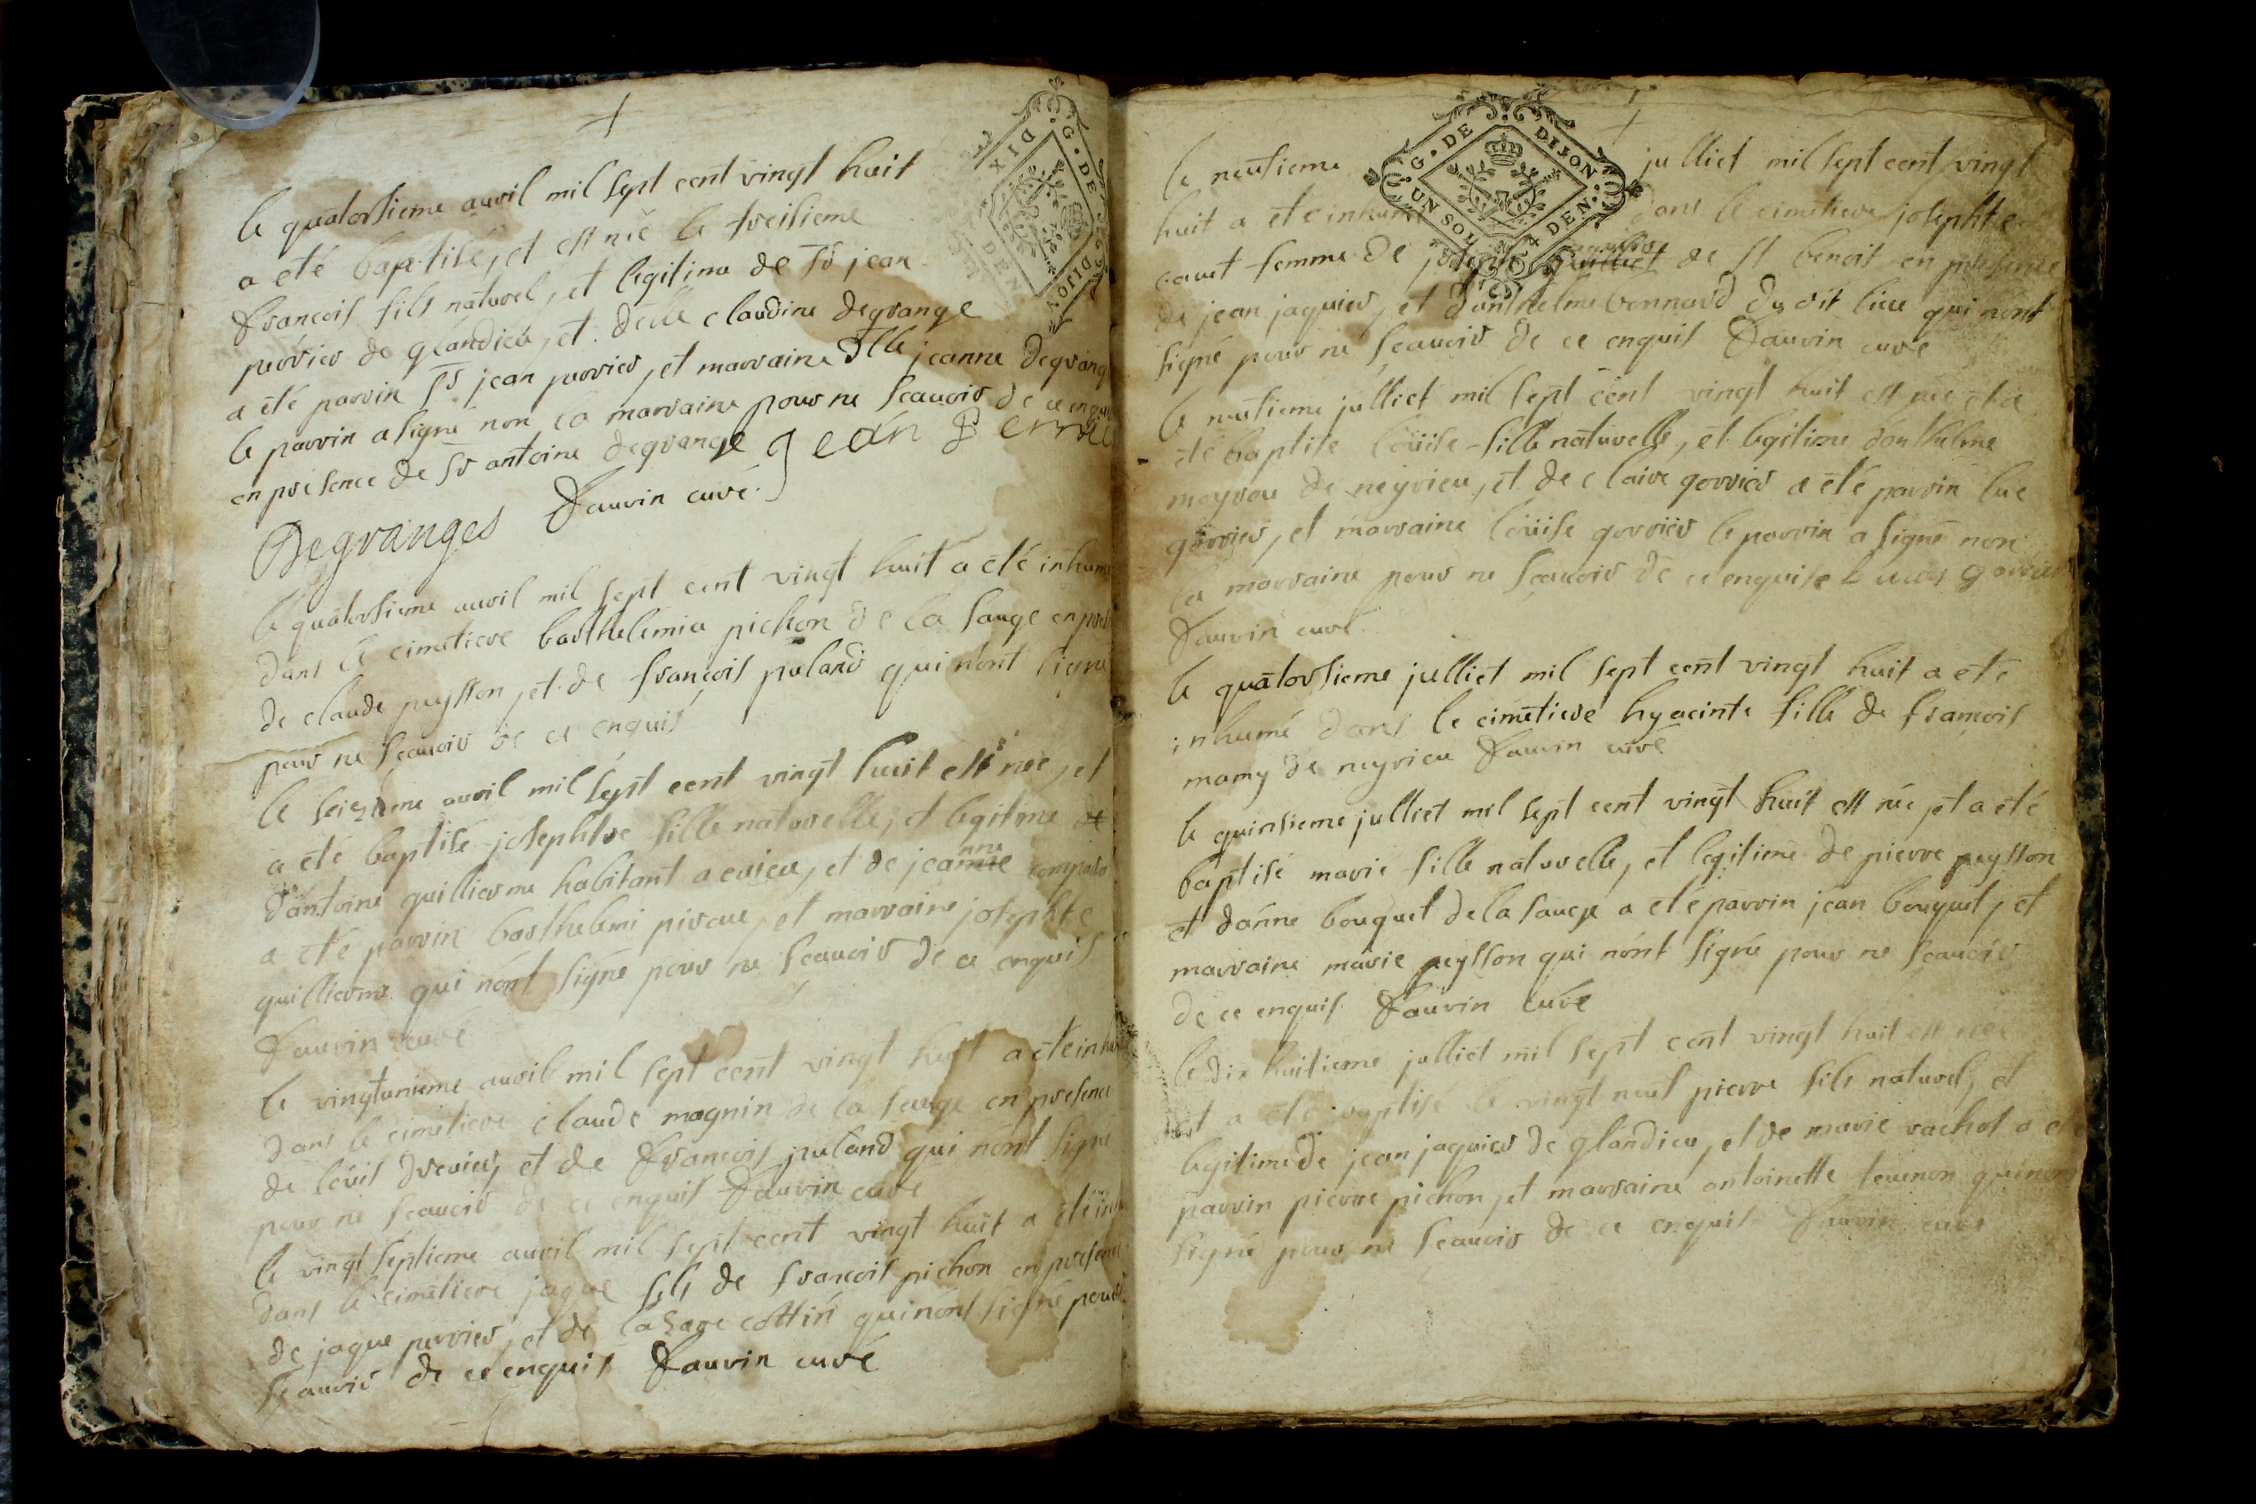 le quatorsieme auril mil sept cent vingt huit
a eté baptisé, et est née le treisieme
francois fils naturel, et legitime de sr jean
perrier de glandieu, et delle claudine degrange
a eté parrin sr jean perrier, et marraine dlle jeanne degrange
le parrin a signé non la marraine pour ne scauoir de ce enquis
en presence de sr antoine degrange Jean Perrier
Degranges fauurin curé
le quatorsieme auril mil sept cent vingt huit a eté inhumé
dans le cimetiere barthelemie pichon de la sauge en presence
de claude peysson, et de francois puland qui nont signé
pour ne scauoir de ce enquis
le seizieme auril mil sept cent vingt huit est née, et
a eté baptisé josephte fille naturelle, et legitime
dantoine guillierme habitant a euieu, et de jeanne
a eté parrin barthelemi pirau, et marraine josephte
guillierme qui nont signé pour ne scauoir de ce enquis
fauurin curé
le vingtunieme auril mil sept cent vingt huit a eté inhumé
dans le cimetiere claude magnin de la sauge en presence
de loüis dreuier, et de francois puland qui nont signé
pour ne scauoir de ce enquis fauurin curé
le vingt septieme auril mil sept cent vingt huit a eté
dans le cimetiere jaque fils de francois pichon en presence
de jaque perrier, et de lasare cottin qui nont signé pour ne
scauoir de ce enquis fauurin curé
G. DE DIJON
UN SOL 4 DEN.
le neufieme julliet mil sept cent vingt
huit a eté inhumé dans le cimetiere josephte
cauet femme de joseph de st benoit en presence
de jean jaquier, et danthelme bonnard du dit lieu qui nont
signé pour ne scauoir de ce enquis fauurin curé
le neufieme julliet mil sept cent vingt huit est née et a
eté baptisé loüise fille naturelle, et legitime danthelme
meyrou de neyrieu, et de claire gorrier a eté parrin luc
gorrier, et marraine loüise gorrier le parrin a signé non
la marraine pour ne scauoir de ce enquise Lucas gorrier
fauurin curé
le quatorsieme julliet mil sept cent vingt huit a eté
inhumé dans le cimetiere hyacinte fille de francois
mamy de neyrieu fauurin curé
le quinsieme julliet mil sept cent vingt huit est née et a eté
baptisé marie fille naturelle, et legitime de pierre peysson
et danne bouquet de la sauge a eté parrin jean bouquet, et
marraine marie peysson qui nont signé pour ne scauoir
de ce enquis fauurin curé
le dix huitieme julliet mil sept cent vingt huit est née
et a eté baptisé le vingt neuf pierre fils naturel, et
legitime de jean jaquier de glandieu, et de marie vachot a eté
parrin pierre pichon, et marraine antoinette teunon qui nont
signé pour ne scauoir de ce enquis fauurin curé